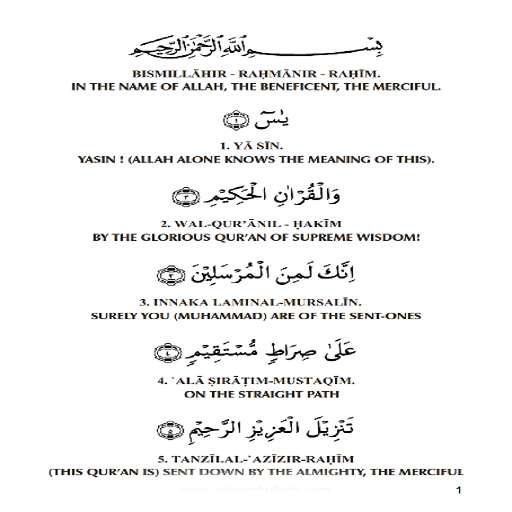 بِسْمِ اللهِ الرَّحْمٰنِ الرَّحِيْمِ
BISMILLĀHIR - RAḤMĀNIR - RAḤĪM.
IN THE NAME OF ALLAH, THE BENEFICENT, THE MERCIFUL.
يٰسٓ ﴿١﴾
1. YĀ SĪN.
YASIN ! (ALLAH ALONE KNOWS THE MEANING OF THIS).
وَالْقُرْاٰنِ الْحَكِيْمِ ﴿٢﴾
2. WAL-QUR'ĀNIL - ḤAKĪM
BY THE GLORIOUS QUR'AN OF SUPREME WISDOM!
اِنَّكَ لَمِنَ الْمُرْسَلِيْنَ ﴿٣﴾
3. INNAKA LAMINAL-MURSALĪN.
SURELY YOU (MUHAMMAD) ARE OF THE SENT-ONES
عَلٰى صِرَاطٍ مُّسْتَقِيْمٍ ﴿٤﴾
4. `ALĀ ṢIRĀṬIM-MUSTAQĪM.
ON THE STRAIGHT PATH
تَنْزِيْلَ الْعَزِيْزِ الرَّحِيْمِ ﴿٥﴾
5. TANZĪLAL-`AZĪZIR-RAḤĪM
(THIS QUR'AN IS) SENT DOWN BY THE ALMIGHTY, THE MERCIFUL
1